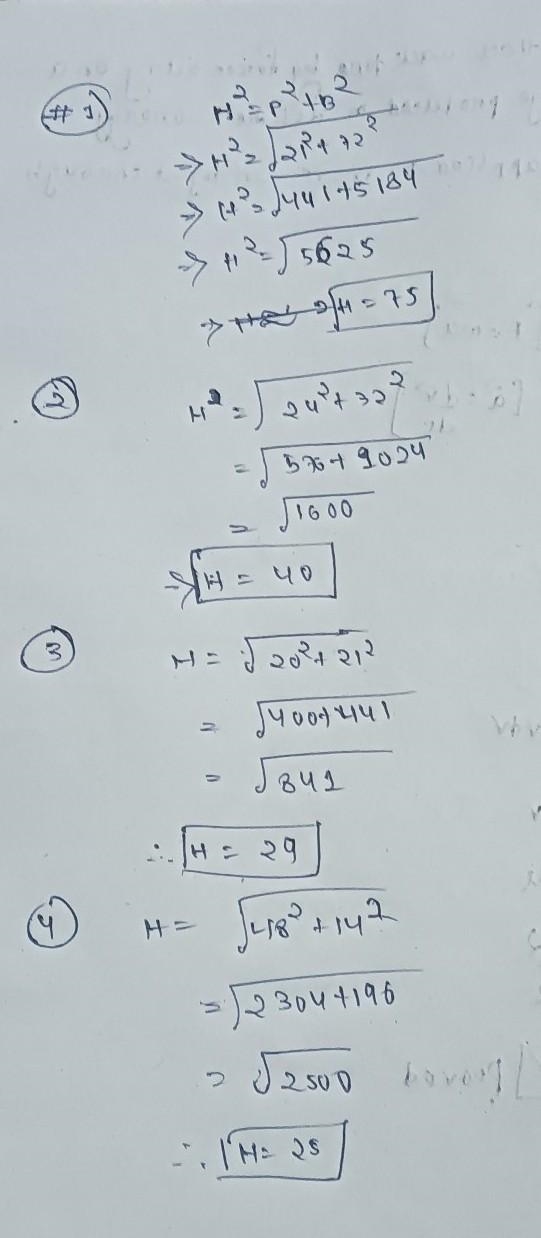 #1) H² = P² + B²
⇒ H² = √21² + 72²
⇒ H² = √441 + 5184
⇒ H² = √5625
⇒ H = 75
② H² = √24² + 32²
= √576 + 1024
= √1600
⇒ H = 40
③ H = √20² + 21²
= √400 + 441
= √841
∴ H = 29
④ H = √48² + 14²
= √2304 + 196
= √2500
∴ H = 25